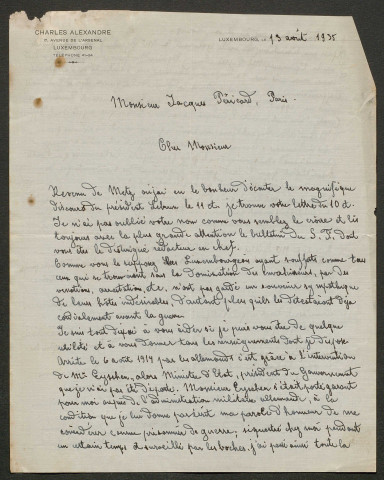 CHARLES ALEXANDRE
AVENUE DE L'ARSENAL
LUXEMBOURG
TÉLÉPHONE
LUXEMBOURG, LE 13 août 1935
Monsieur Jacques Péricard, Paris.
Cher Monsieur
Revenu de Metz où j'ai eu le bonheur d'écouter le magnifique
discours du président Lebrun le 11 ct je trouve votre lettre du 10 ct.
Je n'ai pas oublié votre nom comme vous semblez le croire et lis
toujours avec la plus grande attention le bulletin du S. F. dont
vous êtes le distingué rédacteur en chef.
Comme vous le supposez les Luxembourgeois ayant souffert comme tous
ceux qui se trouvaient sous la domination des envahisseurs, par des
vexations, arrestations, etc. n'ont pas gardé un souvenir sympathique
de leurs hôtes indésirables d'autant plus qu'ils les détestaient déjà
cordialement avant la guerre.
Je suis tout disposé à vous aider si je puis vous être de quelque
utilité et à vous donner tous les renseignements dont je dispose.
Arrêté le 6 août 1914 par les allemands c'est grâce à l'intervention
de Mr Eyschen, alors Ministre d'Etat, président du Gouvernement
que je n'ai pas été déporté. Monsieur Eyschen s'était porté garant
pour moi auprès de l'administration militaire allemande, à la
condition que je lui donne par écrit ma parole d'honneur de me
considérer comme prisonnier de guerre, séquestré chez moi pendant
un certain temps et surveillé par les boches. j'ai passé ainsi toute la